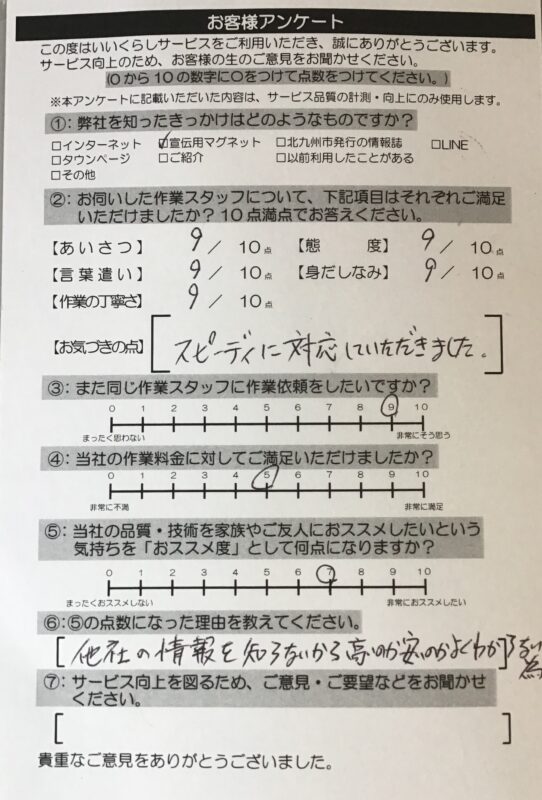 お客様アンケート
この度はいいくらしサービスをご利用いただき、誠にありがとうございます。
サービス向上のため、お客様の生のご意見をお聞かせください。
(0から10の数字に〇をつけて点数をつけてください。)
※本アンケートに記載いただいた内容は、サービス品質の計測・向上にのみ使用します。
①：弊社を知ったきっかけはどのようなものですか？
□インターネット ☑宣伝用マグネット □北九州市発行の情報誌 □LINE
□タウンページ □ご紹介 □以前利用したことがある
□その他
②：お伺いした作業スタッフについて、下記項目はそれぞれご満足
いただけましたか？10点満点でお答えください。
【あいさつ】 9／10点 【態度】 9／10点
【言葉遣い】 9／10点 【身だしなみ】 9／10点
【作業の丁寧さ】 9／10点
【お気づきの点】 スピーディに対応していただきました。
③：また同じ作業スタッフに作業依頼をしたいですか？
0 1 2 3 4 5 6 7 8 9 10
まったく思わない 非常にそう思う
④：当社の作業料金に対してご満足いただけましたか？
0 1 2 3 4 5 6 7 8 9 10
非常に不満 非常に満足
⑤：当社の品質・技術を家族やご友人におススメしたいという
気持ちを「おススメ度」として何点になりますか？
0 1 2 3 4 5 6 7 8 9 10
まったくおススメしない 非常におススメしたい
⑥：⑤の点数になった理由を教えてください。
他社の情報を知らないから高いのか安いのかよくわからない
点
⑦：サービス向上を図るため、ご意見・ご要望などをお聞かせ
ください。
貴重なご意見をありがとうございました。